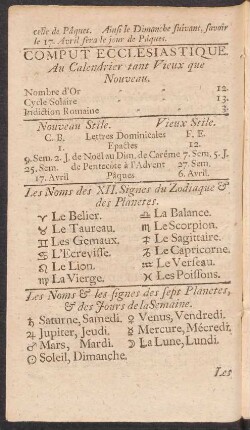 celle de Pâques. Ainsi le Dimanche suivant, savoir
le 17. Avril sera le jour de Pâques.
COMPUT ECCLESIASTIQUE
Au Calendrier tant Vieux que
Nouveau.
Nombre d'Or - - - 12.
Cycle Solaire - - - 13.
Indiction Romaine - - - 3.
Nouveau Stile. Vieux Stile.
C. B. Lettres Dominicales F. E.
1. Epactes 12.
9. Sem. 2. J. de Noël au Dim. de Carême 7. Sem. 5. J.
25. Sem. de Pentecote à l'Advent 27. Sem.
17. Avril Pâques 6. Avril.
Les Noms des XII. Signes du Zodiaque &
des Planetes.
♈ Le Belier. ♎ La Balance.
♉ Le Taureau. ♏ Le Scorpion.
♊ Les Gemaux. ♐ Le Sagittaire.
♋ L'Ecrevisse. ♑ Le Capricorne.
♌ Le Lion. ♒ Le Verseau.
♍ La Vierge. ♓ Les Poissons.
Les Noms & les signes des sept Planetes,
& des Jours de la Semaine.
♄ Saturne, Samedi. ♀ Venus, Vendredi.
♃ Jupiter, Jeudi. ☿ Mercure, Mécredi.
♂ Mars, Mardi. ☽ La Lune, Lundi.
☉ Soleil, Dimanche.
Les